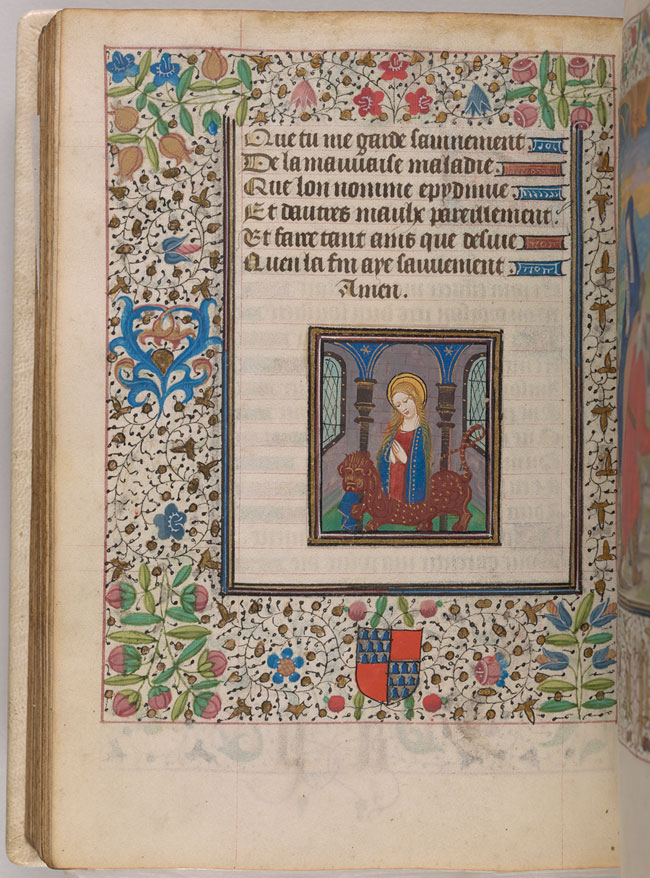 Que tu me garde sainnement
De la mauuaise maladie
Que lon nomme epydimie
Et dautres maulx pareillement:
Et faire tant auis que desuie
Quen la fin aye sauuement
Amen.